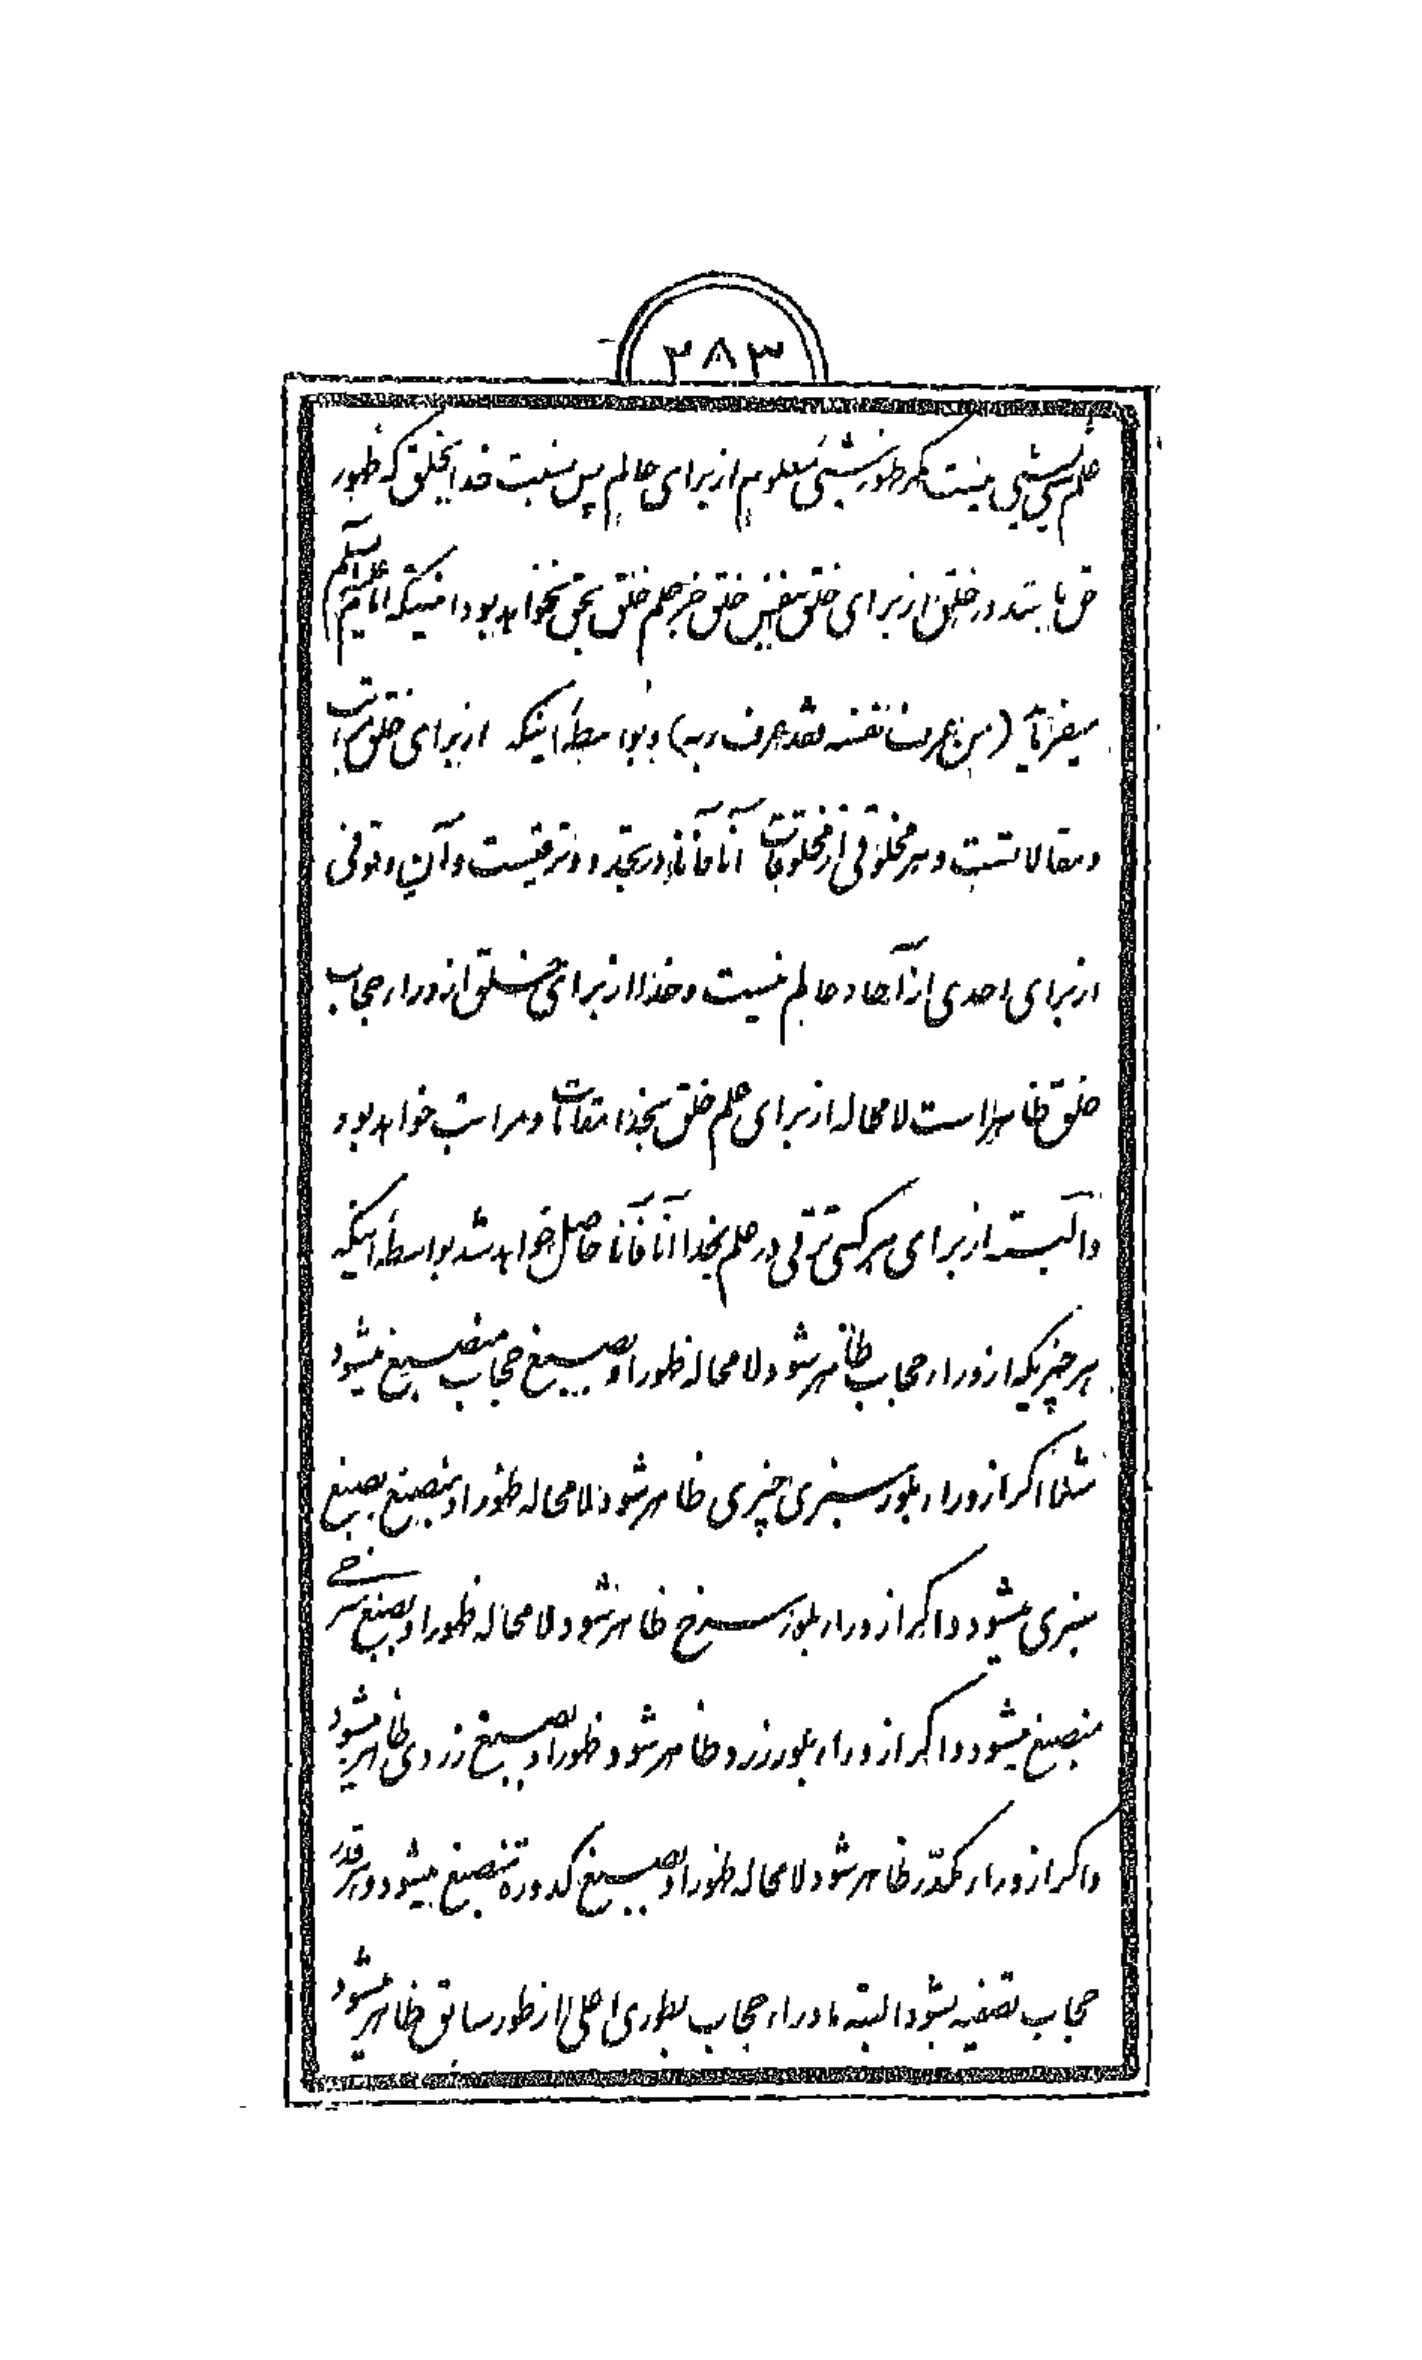 ۲۸۳
علم بشیئی نیست مگر ظهور شیئی معلوم از برای عالم پس نسبت خدا بخلق که ظهور
حق باشد در خلق از برای خلق بنفس خلق جز علم خلق بحق نخواهد بود اینستکه امام علیه السلام
میفرماید (من عرف نفسه فقد عرف ربه) و بواسطهٔ اینکه از برای خلق مراتب
و مقاماتست و هر مخلوقی از مخلوقات آنا فآنا در تجدد و ترقیست و آن وقوفی
از برای احدی از آحاد عالم نیست و خدا از برای خلق از وراء حجاب
خلق ظاهر است لا محاله از برای علم خلق بخدا مقامات و مراتب خواهد بود
و البته از برای هر کسی ترقی در علم بخدا آنا فآنا حاصل خواهد شد بواسطهٔ اینکه
هر چیزیکه از وراء حجاب ظاهر شود لا محاله ظهور او بصبغ حجاب منصبغ میشود
مثلا اگر از وراء بلور سبزی چیزی ظاهر شود لا محاله ظهور او منصبغ بصبغ
سبزی میشود و اگر از وراء بلور سرخ ظاهر شود لا محاله ظهور او بصبغ سرخی
منصبغ میشود و اگر از وراء بلور زرد ظاهر شود ظهور او بصبغ زردی ظاهر میشود
و اگر از وراء مکدّر ظاهر شود لا محاله ظهور او بصبغ کدورة منصبغ میشود و هر قدر
حجاب تصفیه بشود البته ماوراء حجاب بطوری اعلی از طور سابق ظاهر میشود